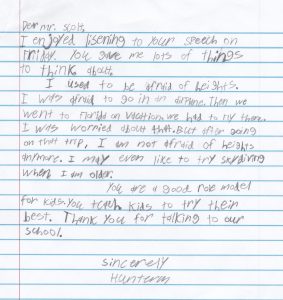 Dear mr. Scott,
I enjoyed lisening to your speech on
Friday. You gave me lots of things
to think about.
I used to be afraid of heights.
I was afraid to go in an airplane. Then we
went to Florida on vacation. We had to fly there.
I was worried about that. But after going
on that trip, I am not afraid of heights
anymore. I may even like to try skydiving
when I am older.
You are a good role model
for kids. You teach kids to try their
best. Thank you for talking to our
school.
sincerely